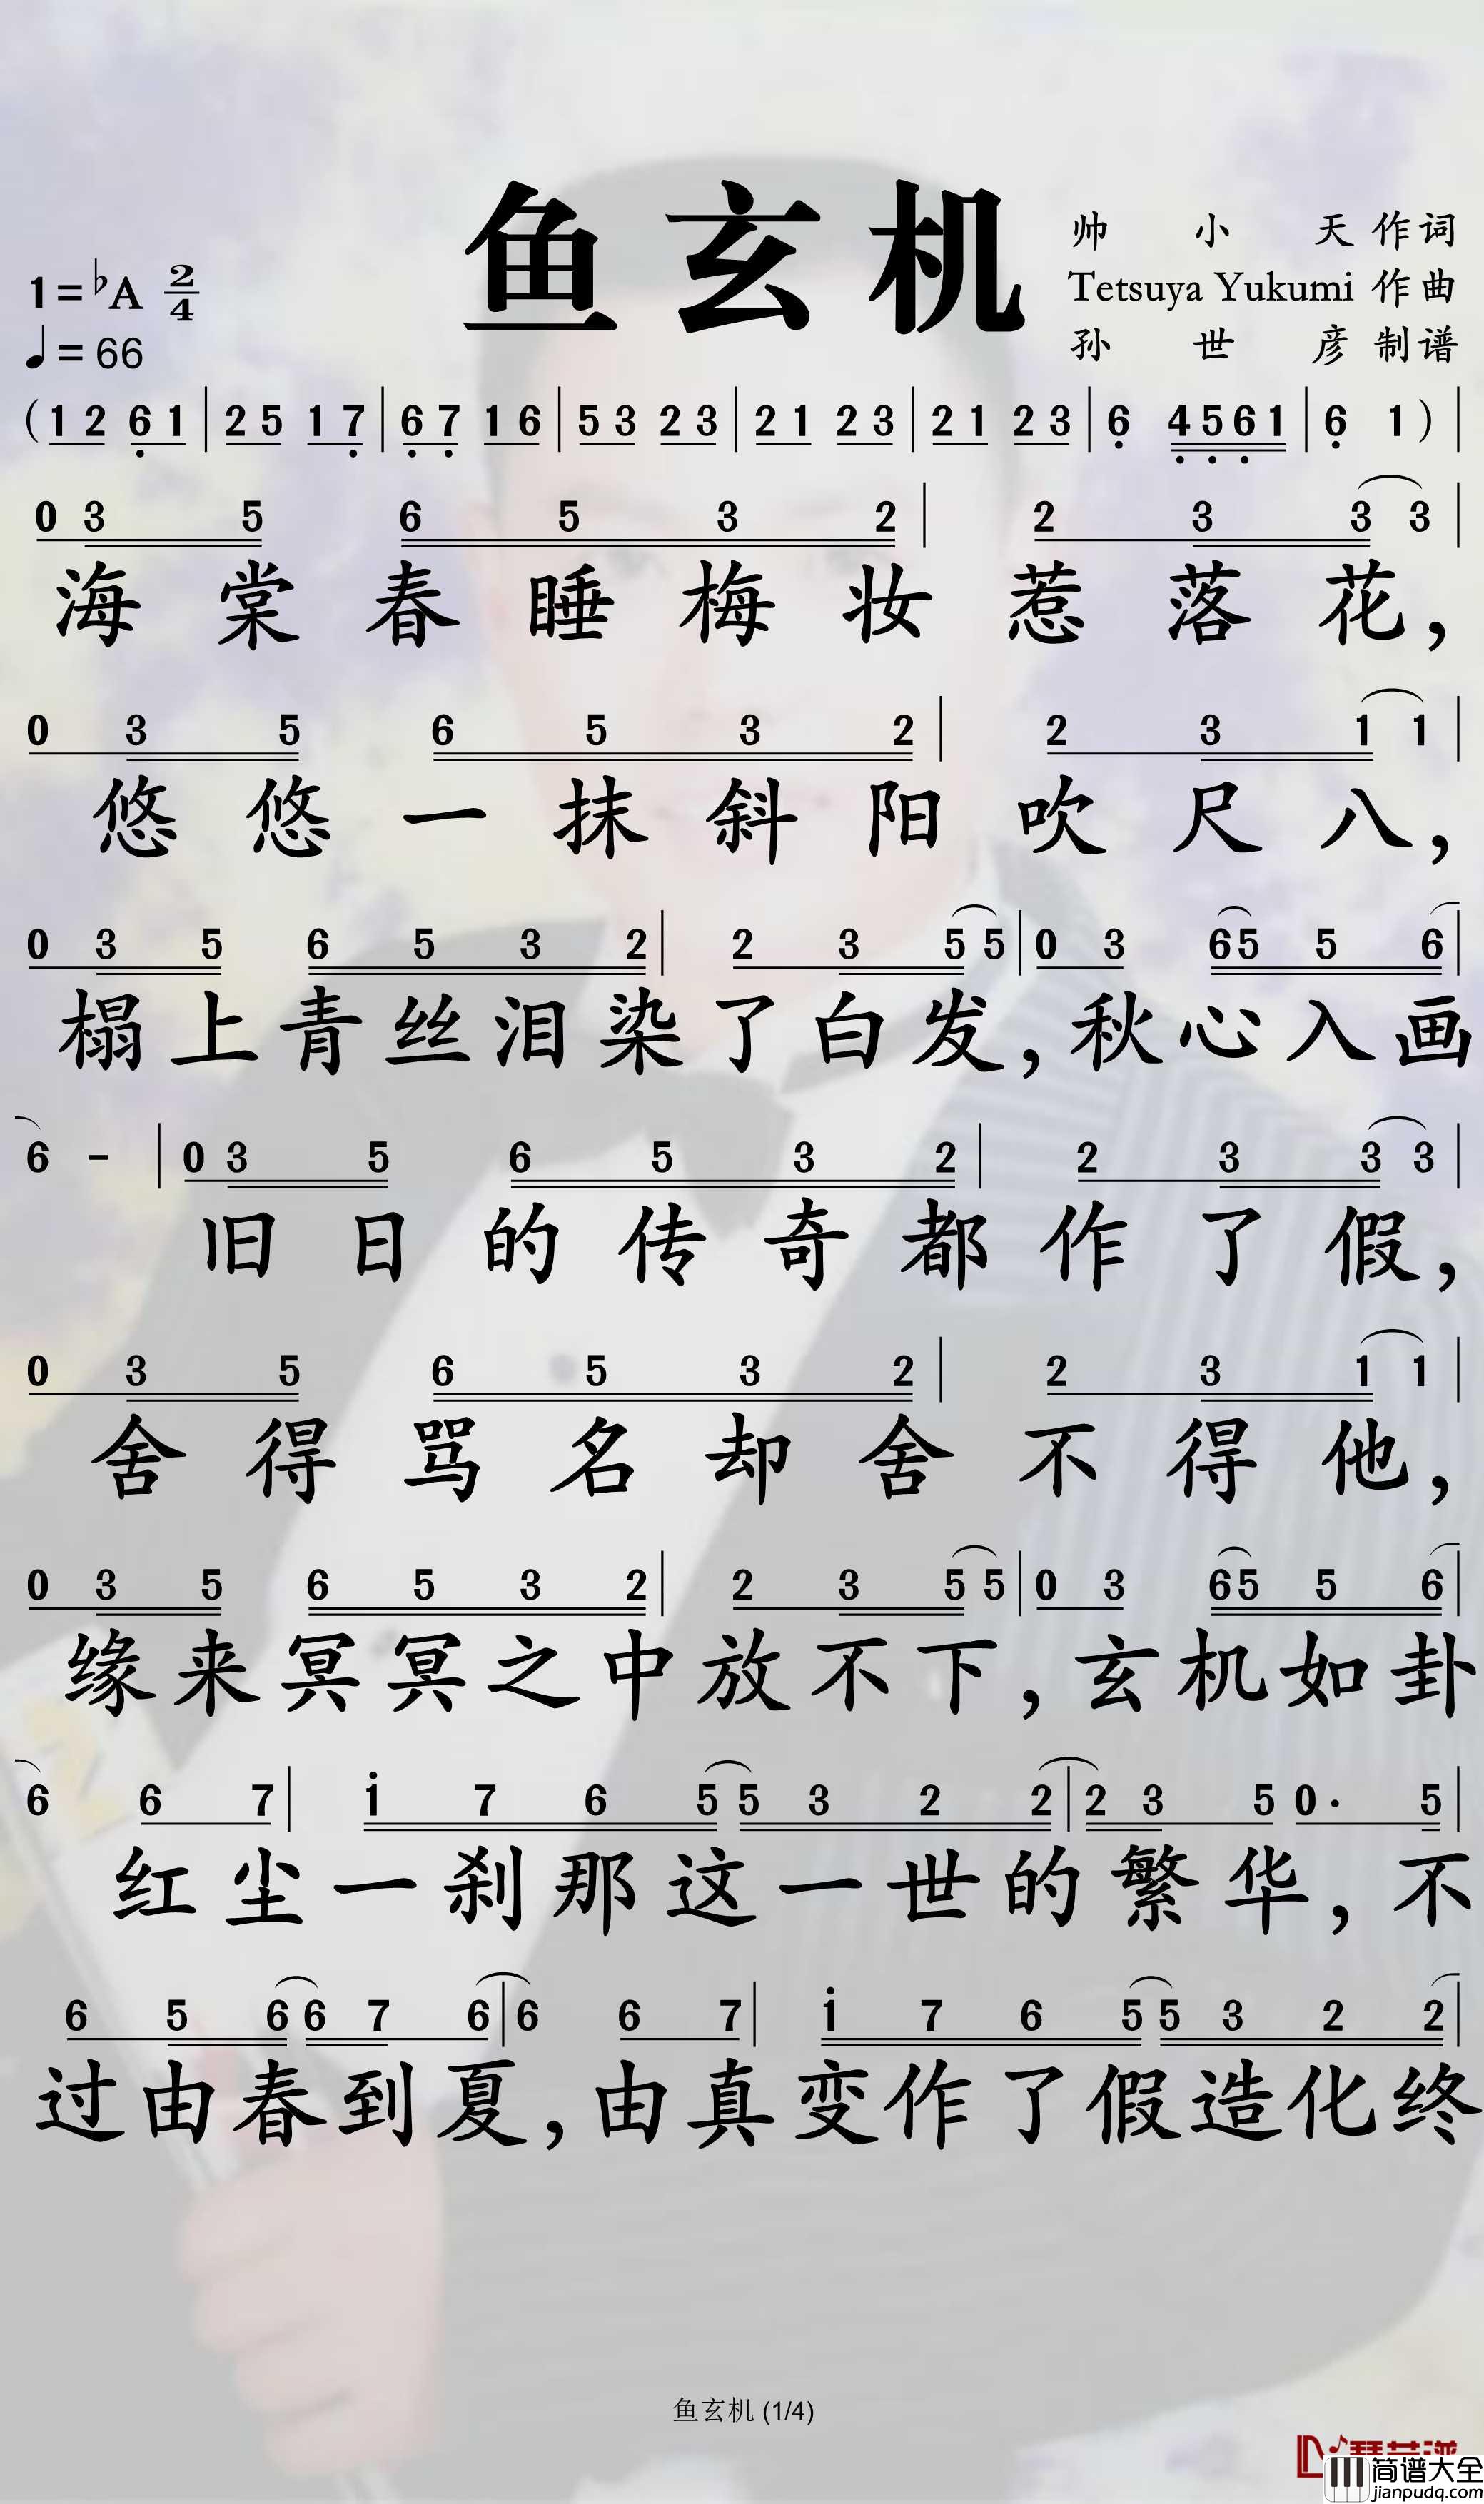 鱼玄机
帅小天作词
1=♭A 2/4
Tetsuya Yukumi 作曲
♩=66
孙世彦制谱
(1 2 6 1 | 2 5 1 7 | 6 7 1 6 | 5 3 2 3 | 2 1 2 3 | 2 1 2 3 | 6 4 5 6 1 | 6 1) |
0 3 5 6 5 3 2 | 2 3 3 3 |
海棠春睡梅妆惹落花，
0 3 5 6 5 3 2 | 2 3 1 1 |
悠悠一抹斜阳吹尺八，
0 3 5 6 5 3 2 | 2 3 5 5 | 0 3 6 5 5 6 |
榻上青丝泪染了白发，秋心入画
6 - | 0 3 5 6 5 3 2 | 2 3 3 3 |
旧日的传奇都作了假，
0 3 5 6 5 3 2 | 2 3 1 1 |
舍得骂名却舍不得他，
0 3 5 6 5 3 2 | 2 3 5 5 | 0 3 6 5 5 6 |
缘来冥冥之中放不下，玄机如卦
6 6 7 | i 7 6 5 5 3 2 2 | 2 3 5 0· 5 |
红尘一刹那这一世的繁华，不
6 5 6 6 7 6 | 6 6 7 | i 7 6 5 5 3 2 2 |
过由春到夏，由真变作了假造化终
鱼玄机 (1/4)
简谱大全
jianpudq.com